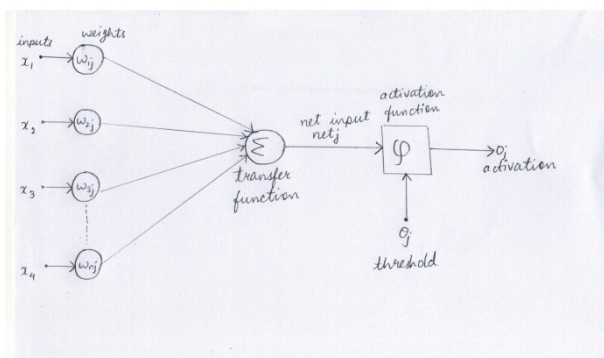 inputs
weights
x₁
w₁ⱼ
x₂
w₂ⱼ
x₃
w₃ⱼ
x₄
wₙⱼ
Σ
transfer
function
net input
netj
activation
function
φ
oj
activation
θj
threshold